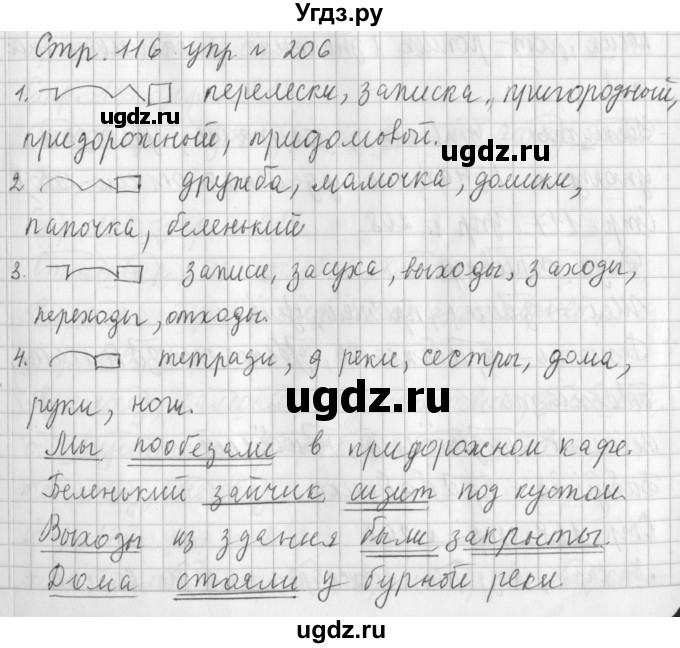 Угдз.ру
Стр. 116 упр № 206
1. перелески, записка, пригородный,
ugdz.ru
придорожный, придомовый.
ugdz.ru
2. дружба, мамочка, домики,
папочка, беленький
3. записи, засуха, выходы, заходы,
переходы, отходы.
4. тетради, д реки, сестры, дома,
ugdz.ru
руки, ноги.
Мы пообедали в придорожном кафе.
Беленький зайчик сидит под кустом.
Выходы из здания были закрыты.
ugdz.ru
Дома стояли у бурной реки.
ugdz.ru